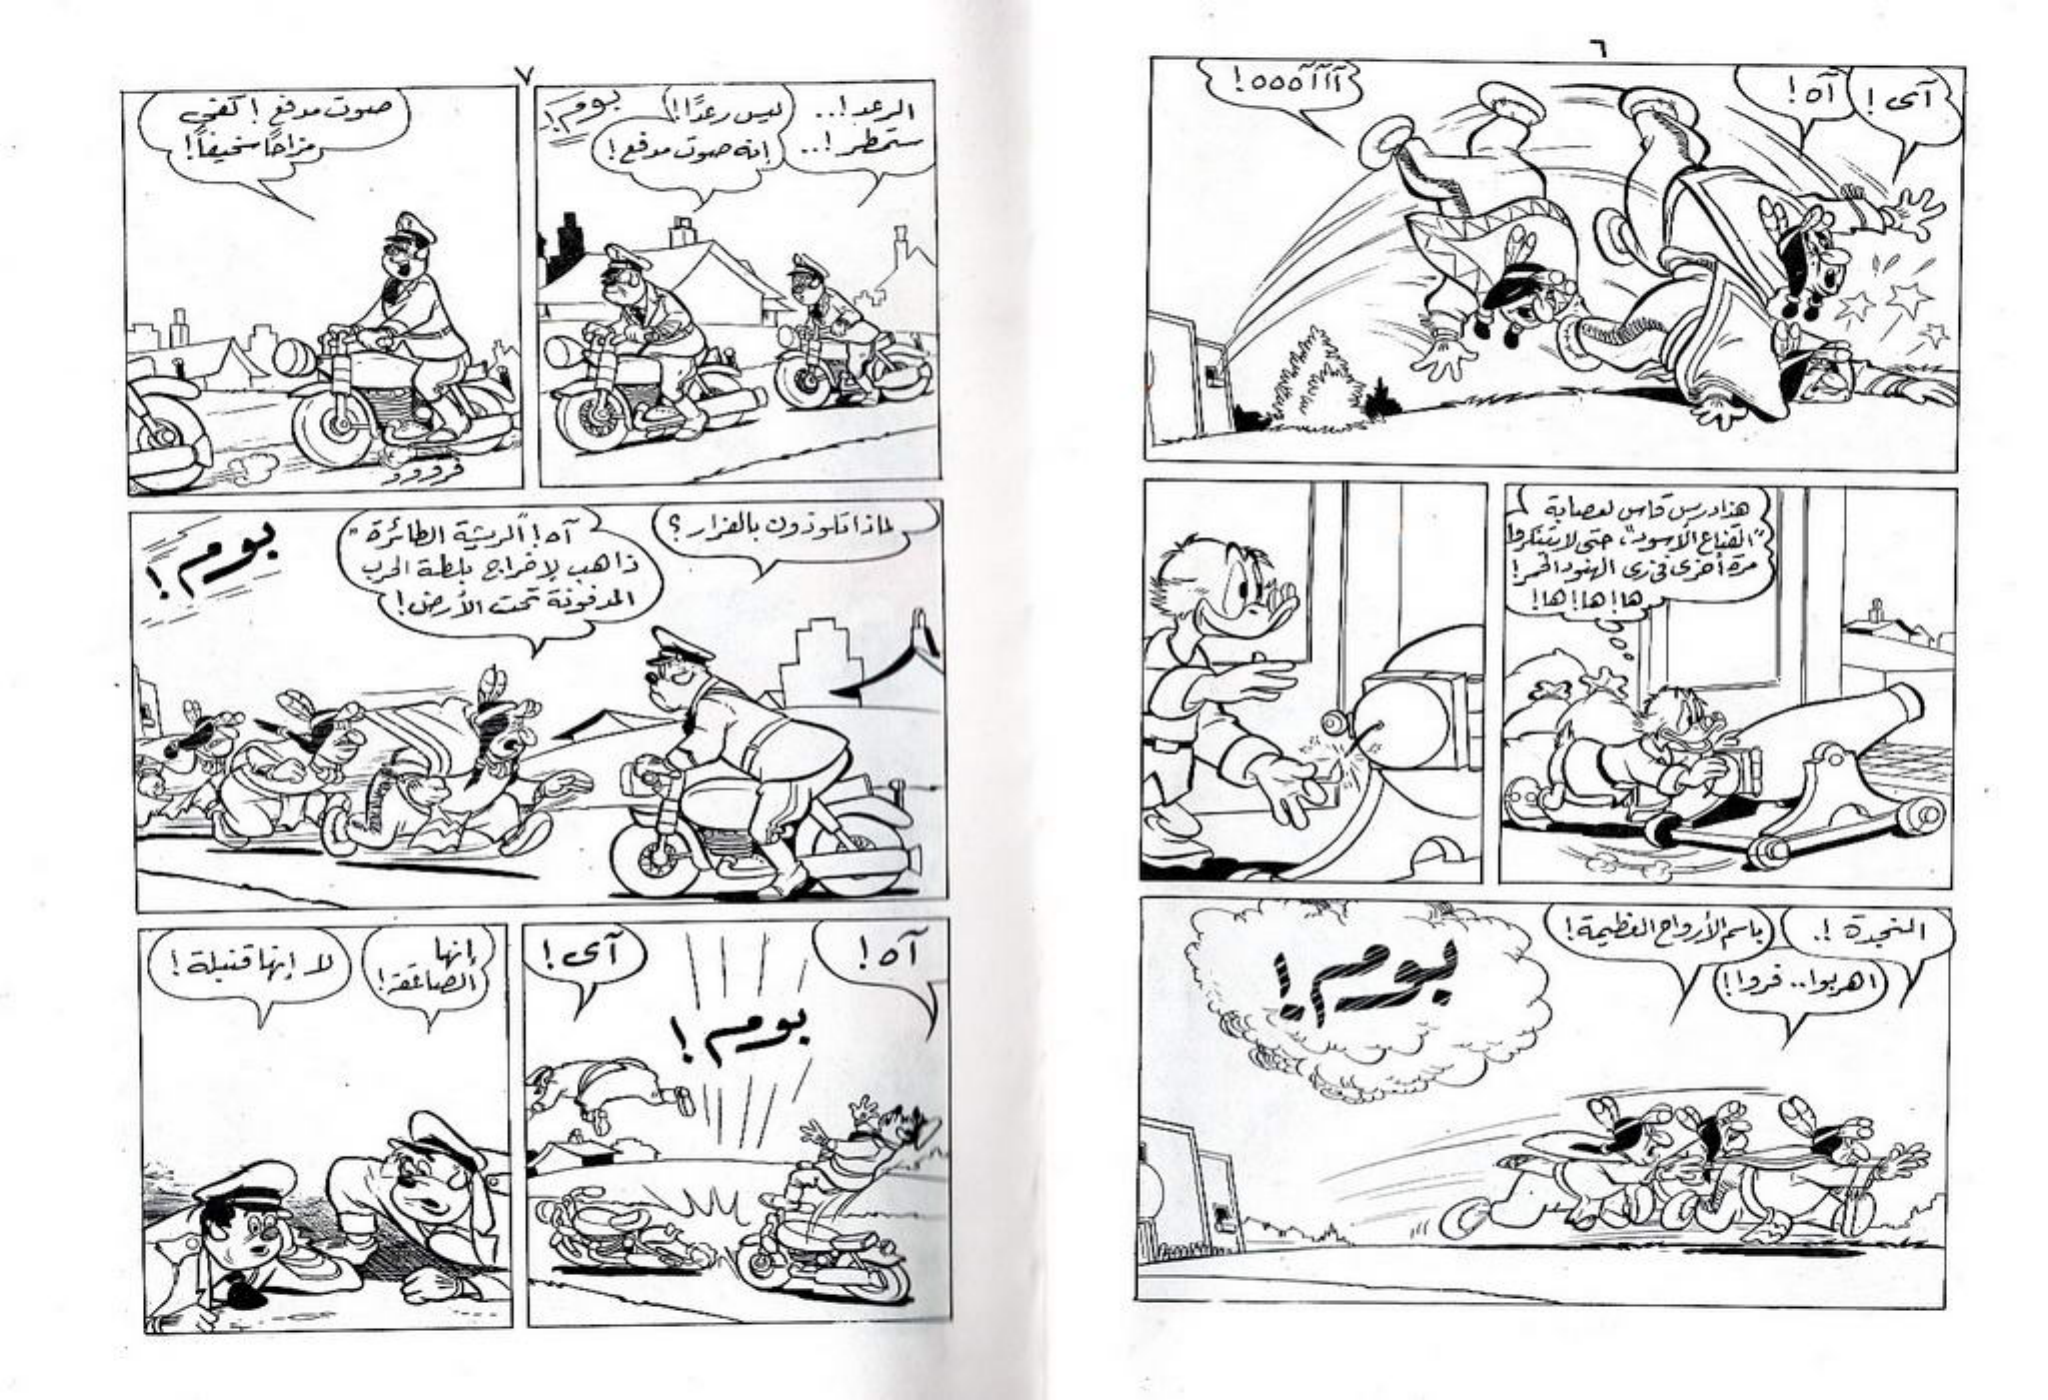 ٦
آى !
آه !
آآآآههه !
هذا درس قاس لعصابة
"القناع الأسود"، حتى لا يتنكروا
مرة أخرى فى زى الهنود الحمر !
ها ! ها ! ها !
النجدة !.
باسم الأرواح العظيمة !
اهربوا.. فروا !
بوم !
٧
الرعد !..
ستمطر !..
ليس رعدًا !
إنه صوت مدفع !
بوم !
صوت مدفع ! كفى
مزاحًا سخيفًا !
فروووو
لماذا تلوذون بالفرار ؟
آه ! "الريشة الطائرة"
ذاهب لإخراج بلطة الحرب
المدفونة تحت الأرض !
بوم !
آه !
بوم !
آى !
إنها
الصاعقة !
لا إنها قنبلة !